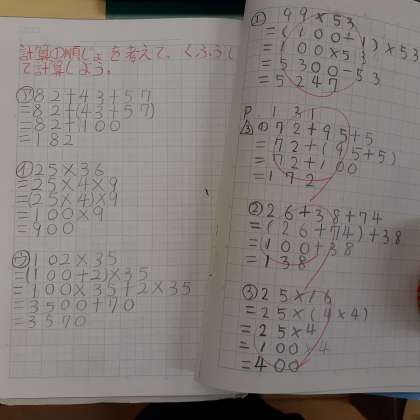 計算の順じょを考えて、くふうし
て計算しよう。
㋐82+43+57
=82+(43+57)
=82+100
=182
㋑25×36
=25×4×9
=(25×4)×9
=100×9
=900
㋒102×35
=(100+2)×35
=100×35+2×35
=3500+70
=3570
① 99×53
=(100+1)×53
=100×53
=5300-53
=5247
P131
△3 ①72+95+5
=72+(95+5)
=72+100
=172
②26+38+74
=(26+74)+38
=100+38
=138
③25×16
=25×(4×4)
=25×4
=100×4
=400